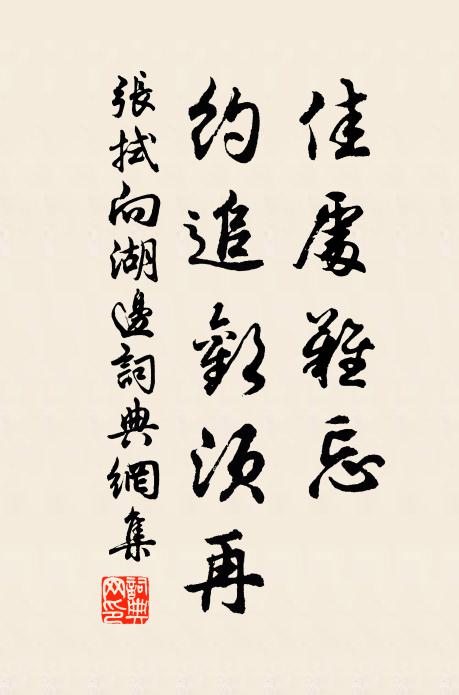 佳處難忘
約追歡須再
張拭向湖邊詞典網集
詞典網印